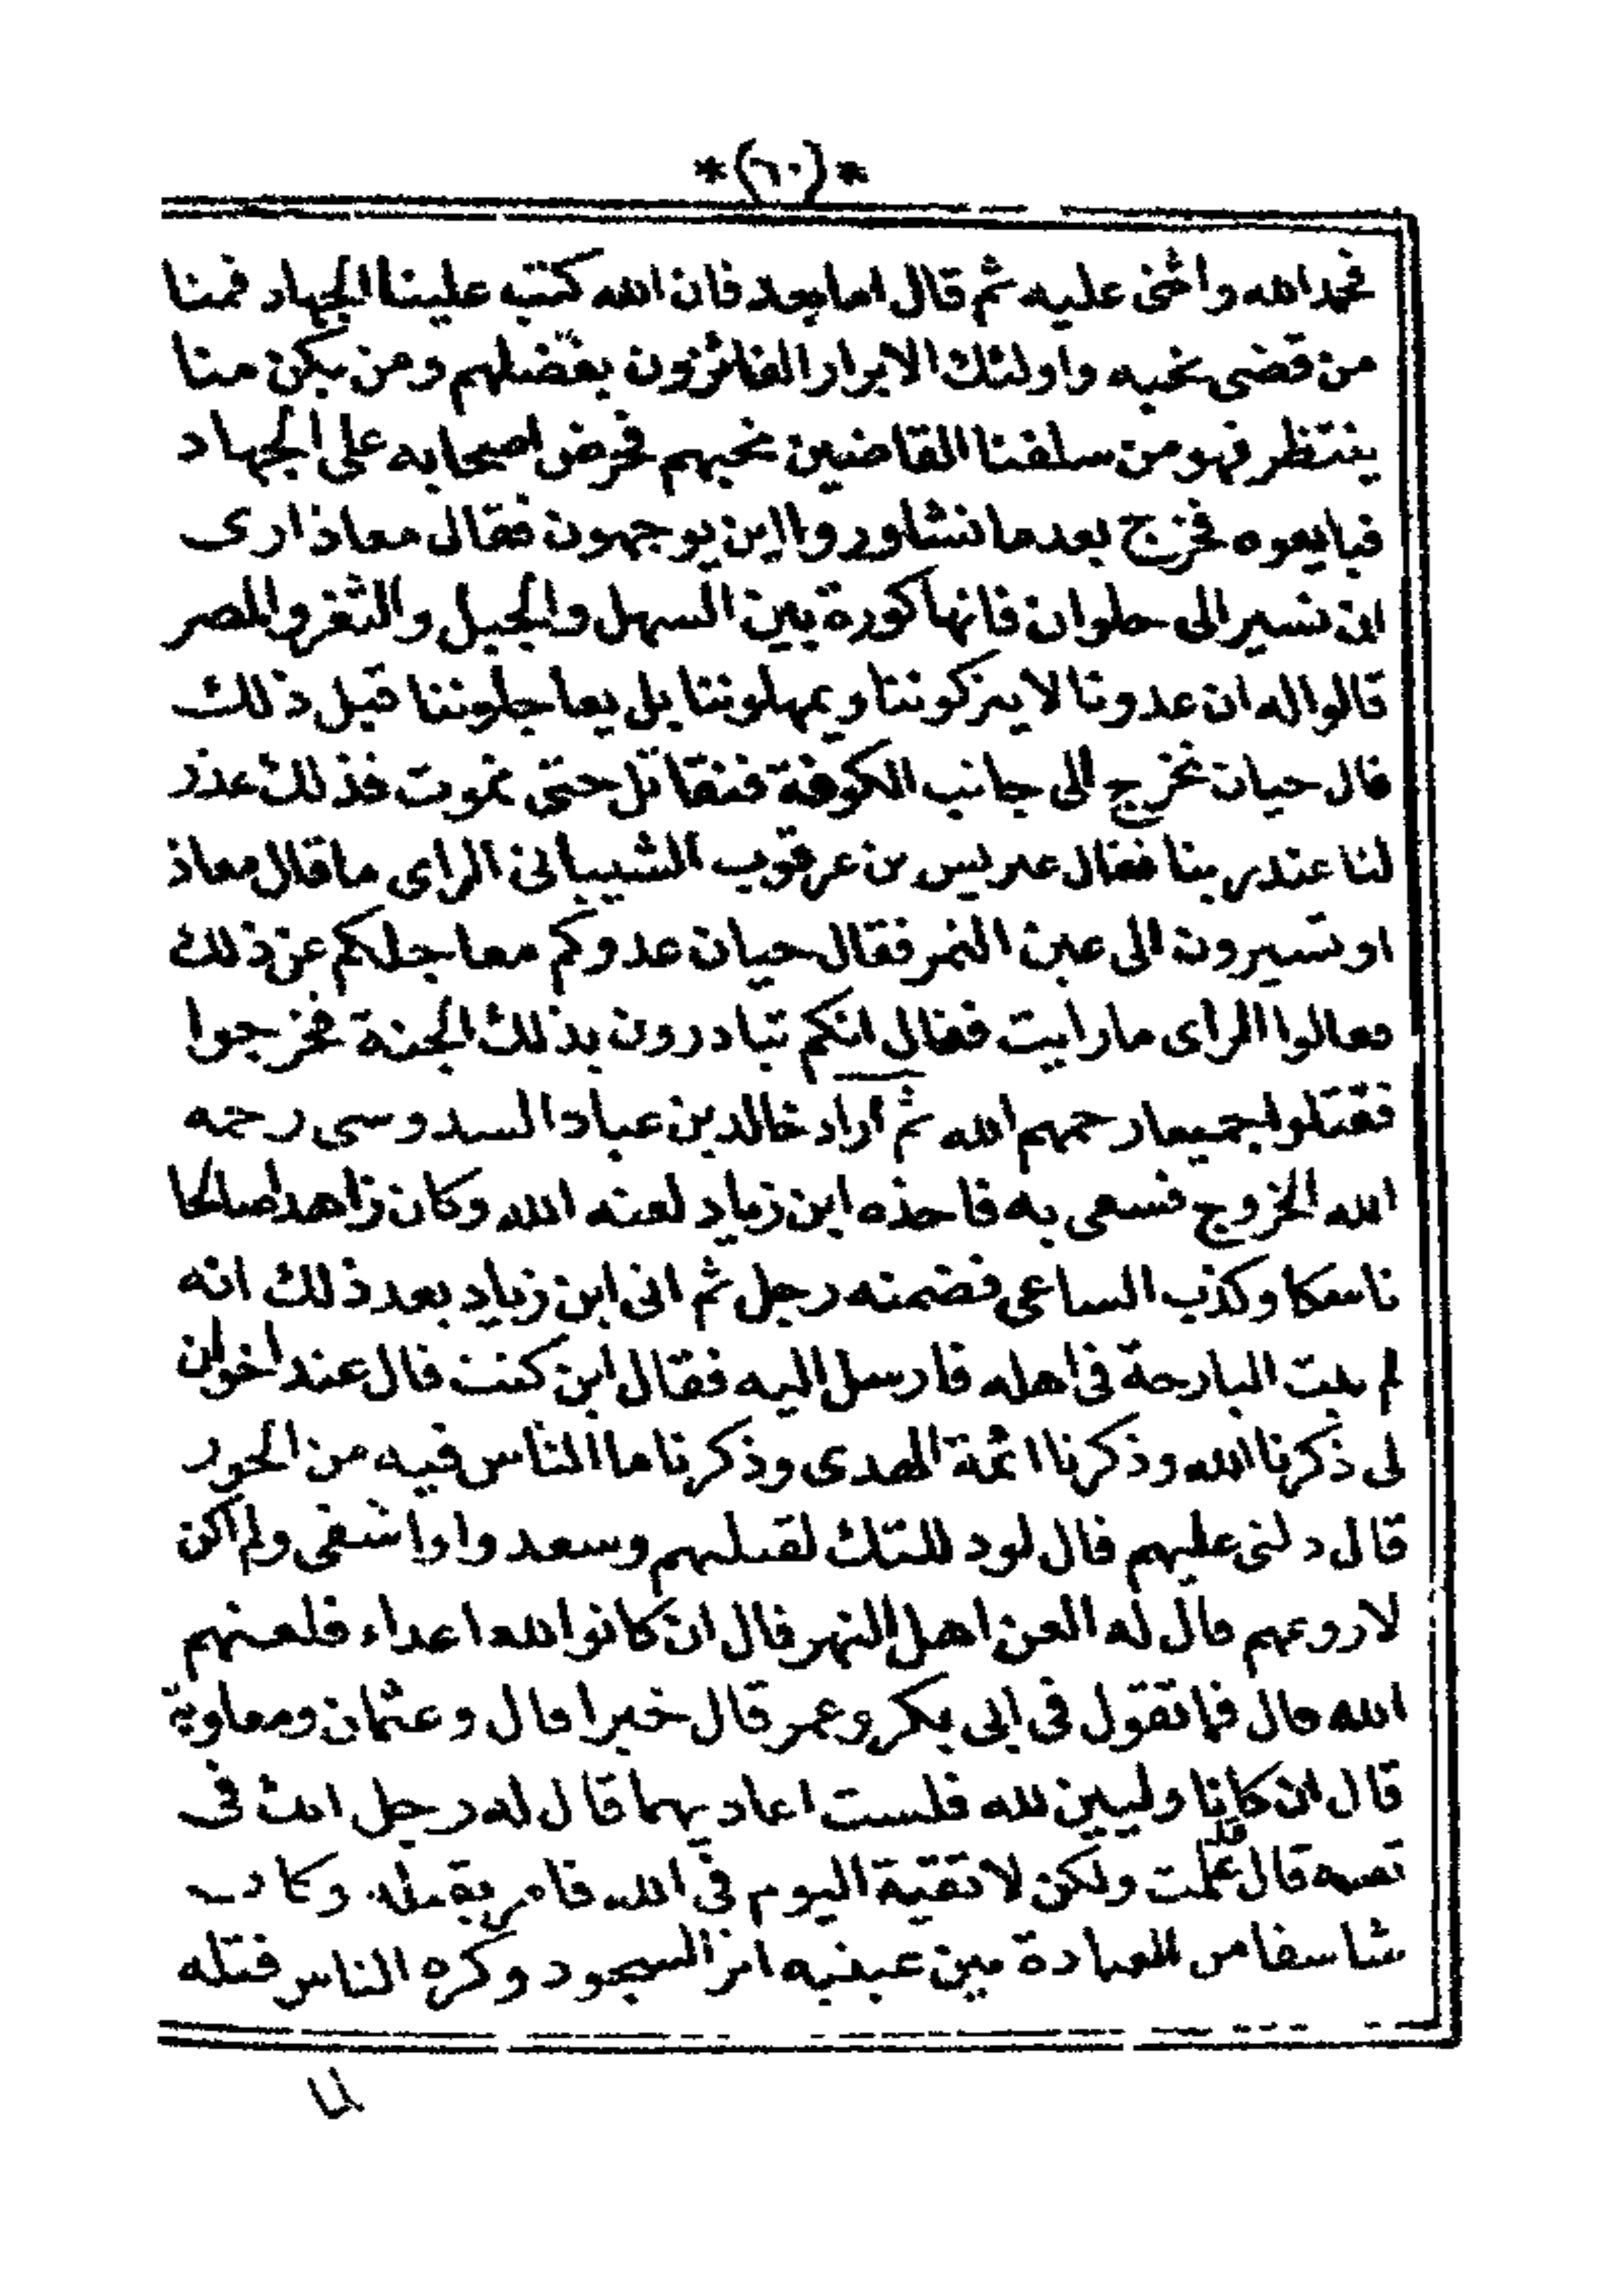 *(٦٠)*
فحمد الله واثنى عليه ثم قال اما بعد فان الله كتب علينا الجهاد فمنا
من قضى نحبه واولئك الابرار الفائزون بفضلهم ومن يكن منا
ينتظر فهو من سلفنا القاضين نحبهم فحرض اصحابه على الجهاد
فبايعوه فخرج بعد ما تشاوروا اين يوجهون فقال معاذ ارى
ان نسير الى حلوان فانها كورة بين السهل والجبل والثغر والمصر
قالوا له ان عدونا لا يتركوننا ويمهلوننا بل يعاجلوننا قبل ذلك
قال حيان نخرج الى جانب الكوفة فنقاتل حتى نموت فذلك عذر
لنا عند ربنا فقال عتريس بن عرقوب الشيبانى الراى ما قال معاذ
او تسيرون الى عين التمر فقال حيان عدوكم معاجلكم عن ذلك
فقالوا الراى ما رايت فقال انكم تبادرون بذلك الجنة فخرجوا
فقتلوا جميعا رحمهم الله ثم اراد خالد بن عباد السدوسى رحمه
الله الخروج فسعى به فاخذه ابن زياد لعنه الله وكان زاهدا صالحا
ناسكا وكذب الساعى فضمنه رجل ثم اتى ابن زياد بعد ذلك انه
لم يبت البارحة فى اهله فارسل اليه فقال اين كنت قال عند اخوان
لى ذكرنا الله وذكرنا ائمة الهدى وذكرنا ما الناس فيه من الجور
قال دلنى عليهم قال لو دللتك لقتلتهم وسعدوا واشقى ولم اكن
لاروعهم قال له العن اهل النهر قال ان كانوا لله اعداء فلعنهم
الله قال فما تقول فى ابى بكر وعمر قال خيرا قال وعثمان ومعاوية
قال ان كانا وليين لله فلست اعاديهما قال له رجل انك فى
تقية قال قد علمت ولكن لا تقية اليوم فى الله فامر بقتله وكان
شاسفا من العبادة بين عينيه اثر السجود وكره الناس قتله